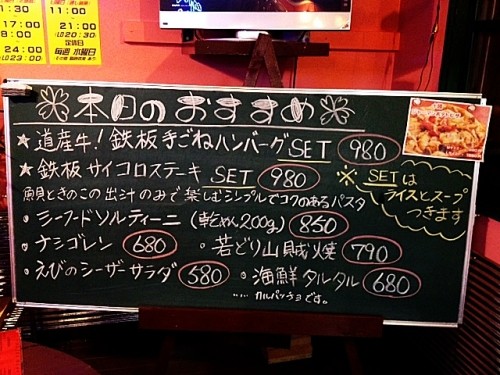 1:30
17:00
9:00
24:00
LO23:00
11:00
21:00
LO20:30
定休日
毎週 水曜日
本日のおすすめ
★道産牛!鉄板手ごねハンバーグSET 980
★鉄板サイコロステーキ SET 980
※SETは
ライスとスープ
つきます
魚貝ときのこの出汁のみで楽しむシンプルでコクのあるパスタ
・シーフードソルティーニ(乾めん200g) 850
・ナシゴレン 680 ・若どり山賊焼 790
・えびのシーザーサラダ 580 ・海鮮タルタル 680
....カルパッチョです。